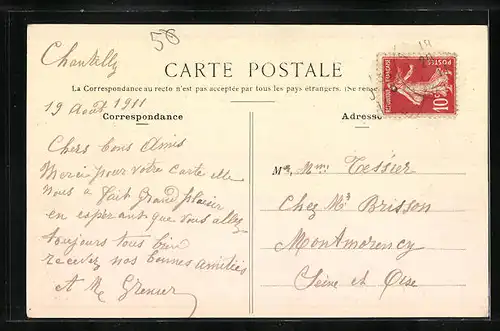 Chantilly
58
CARTE POSTALE
La Correspondance au recto n'est pas acceptée par tous les pays étrangers. (Se rense
19 Août 1911
Correspondance
Adresse
Chers bons Amis
Merci pour votre carte elle
nous a fait grand plaisir
en espérant que vous allez
toujours tous bien
recevez nos bonnes amitiées
A M Grenier
M. Mme Tessier
Chez Mr Brisson
Montmorency
Seine et Oise
10
POSTES